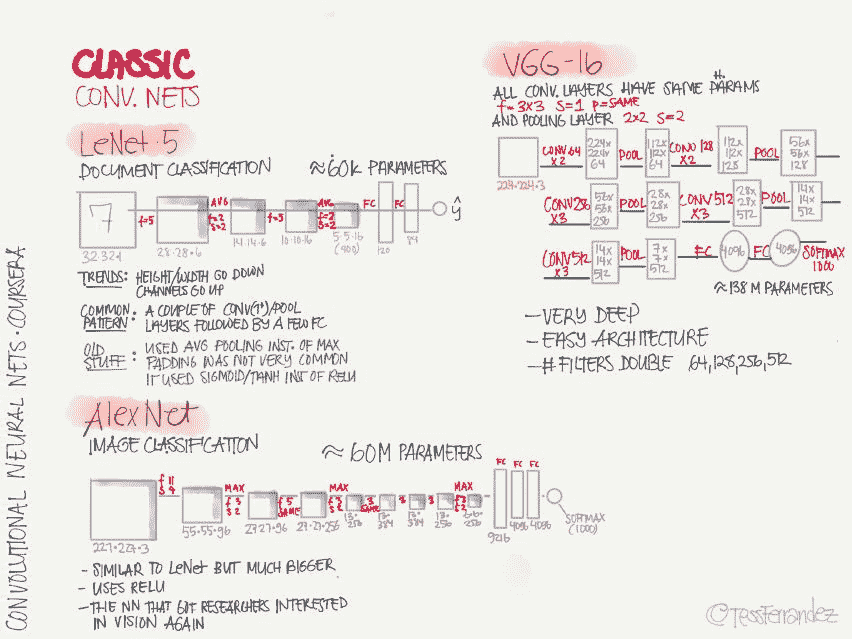 CLASSIC
CONV. NETS
LeNet-5
DOCUMENT CLASSIFICATION ≈60K PARAMETERS
7
f=5
AVG
f=2
s=2
f=5
AVG
f=2
s=2
FC
FC
ŷ
32·32·1
28·28·6
14·14·6
10·10·16
5·5·16
(400)
120
84
TRENDS: HEIGHT/WIDTH GO DOWN
CHANNELS GO UP
COMMON PATTERN: A COUPLE OF CONV(1+)/POOL
LAYERS FOLLOWED BY A FEW FC
OLD STUFF: USED AVG POOLING INST. OF MAX
PADDING WAS NOT VERY COMMON
IT USED SIGMOID/TANH INST OF RELU
AlexNet
IMAGE CLASSIFICATION ≈ 60M PARAMETERS
f 11
s 4
MAX
f 3
s 2
f 5
SAME
MAX
f 3
s 2
3
SAME
3
3
MAX
f 3
s 2
FC FC FC
227·227·3
55·55·96
27·27·96
27·27·256
13·
256
13·
384
13·
384
13·
256
6·6·
256
9216
4096
4096
SOFTMAX
(1000)
- SIMILAR TO LeNet BUT MUCH BIGGER
- USES RELU
- THE NN THAT GOT RESEARCHERS INTERESTED
IN VISION AGAIN
VGG-16
ALL CONV. LAYERS HAVE SAME PARAMS
f=3X3 S=1 P=SAME
AND POOLING LAYER 2X2 S=2
224·224·3
CONV 64
X2
224x
224x
64
POOL
112x
112x
64
CONV 128
X2
112x
112x
128
POOL
56x
56x
128
CONV 256
X3
56x
56x
256
POOL
28x
28x
256
CONV 512
X3
28x
28x
512
POOL
14x
14x
512
CONV 512
X3
14x
14x
512
POOL
7x
7x
512
FC
4096
FC
4096
SOFTMAX
1000
≈138 M PARAMETERS
- VERY DEEP
- EASY ARCHITECTURE
- # FILTERS DOUBLE 64,128,256,512
CONVOLUTIONAL NEURAL NETS · COURSERA
©TessFerrandez